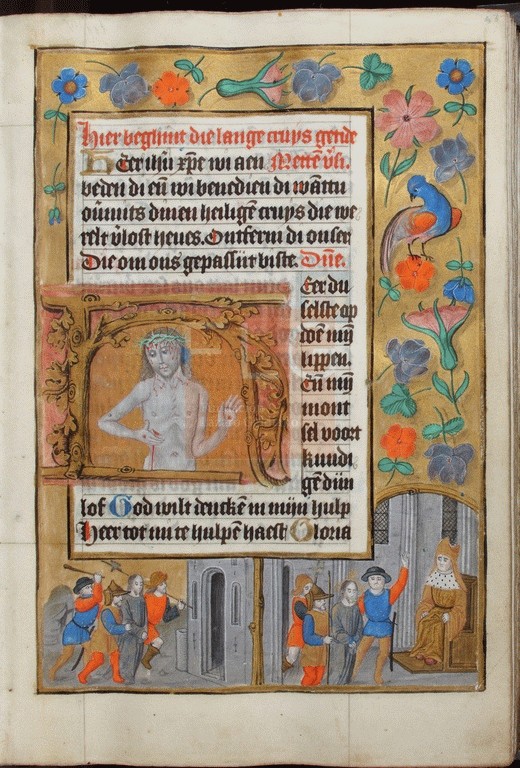 Hier beghint die lange cruys getide
Heer ihū xp̄e wi aen Mettē v̄s.
beden di eñ wi benedien di wātu
ou̇mits dinen heiligē cruys die we
relt v̄lost heues. Ontferm di onser
Die om ons gepassijt biste. Dn̄e.
Eer du
selste op
doē mijn
lippen.
Eñ mijn
mont
sel voort
kundi
gē dijn
lof God wilt dencken in mijn hulp
Heer tot mi te hulpē haest Gloria